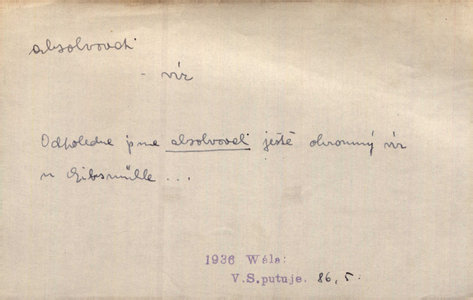 absolvovati
- vír
Odpoledne jsme absolvovali ještě ohromný vír
u Eibsmühle ...
1936 Wéla:
V.S.putuje. 86, 5.